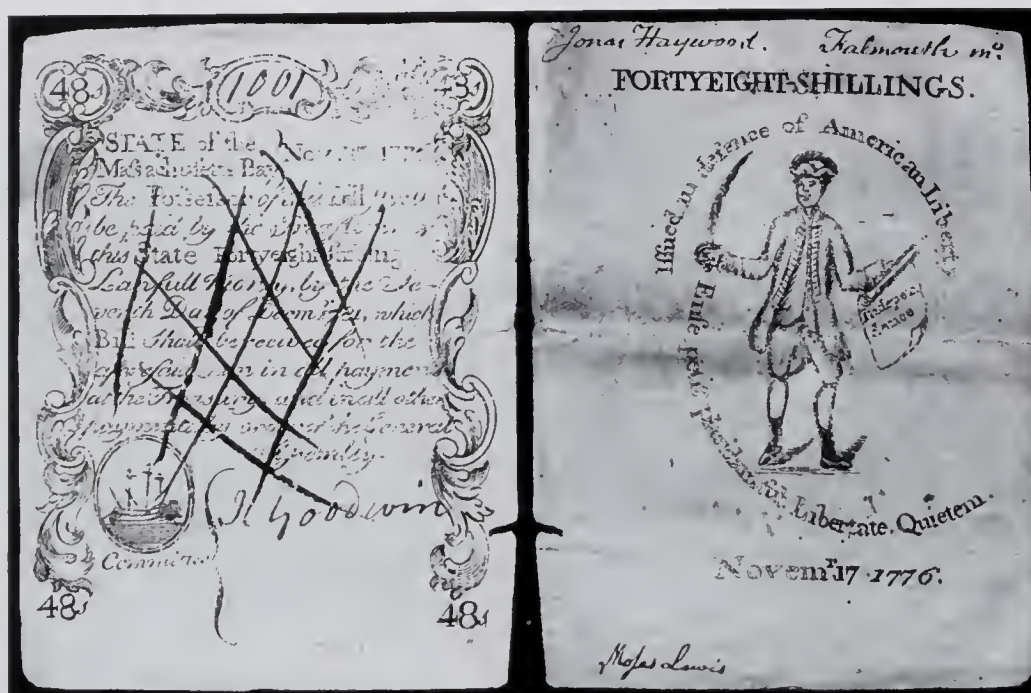 48s 1001 48s
STATE of the Novr. 17 1776
Massachusetts Bay
The Possessor of this Bill shall
be paid by the Treasurer of
this State Fortyeight shilling
Lawfull Money, by the
Day of which
Bill Shall be received for the
aforesaid Sum in all payments
at the Treasury, and in all other
payments by order of the General
Assembly.
N Goodwin
Committee
48s 48s
Jonas Haywood. Falmouth mo.
FORTYEIGHT-SHILLINGS.
Issued in defence of American Liberty
Ense petit Placidam sub Libertate, Quietem.
Independance
Novemr. 17 1776.
Moses Lewis